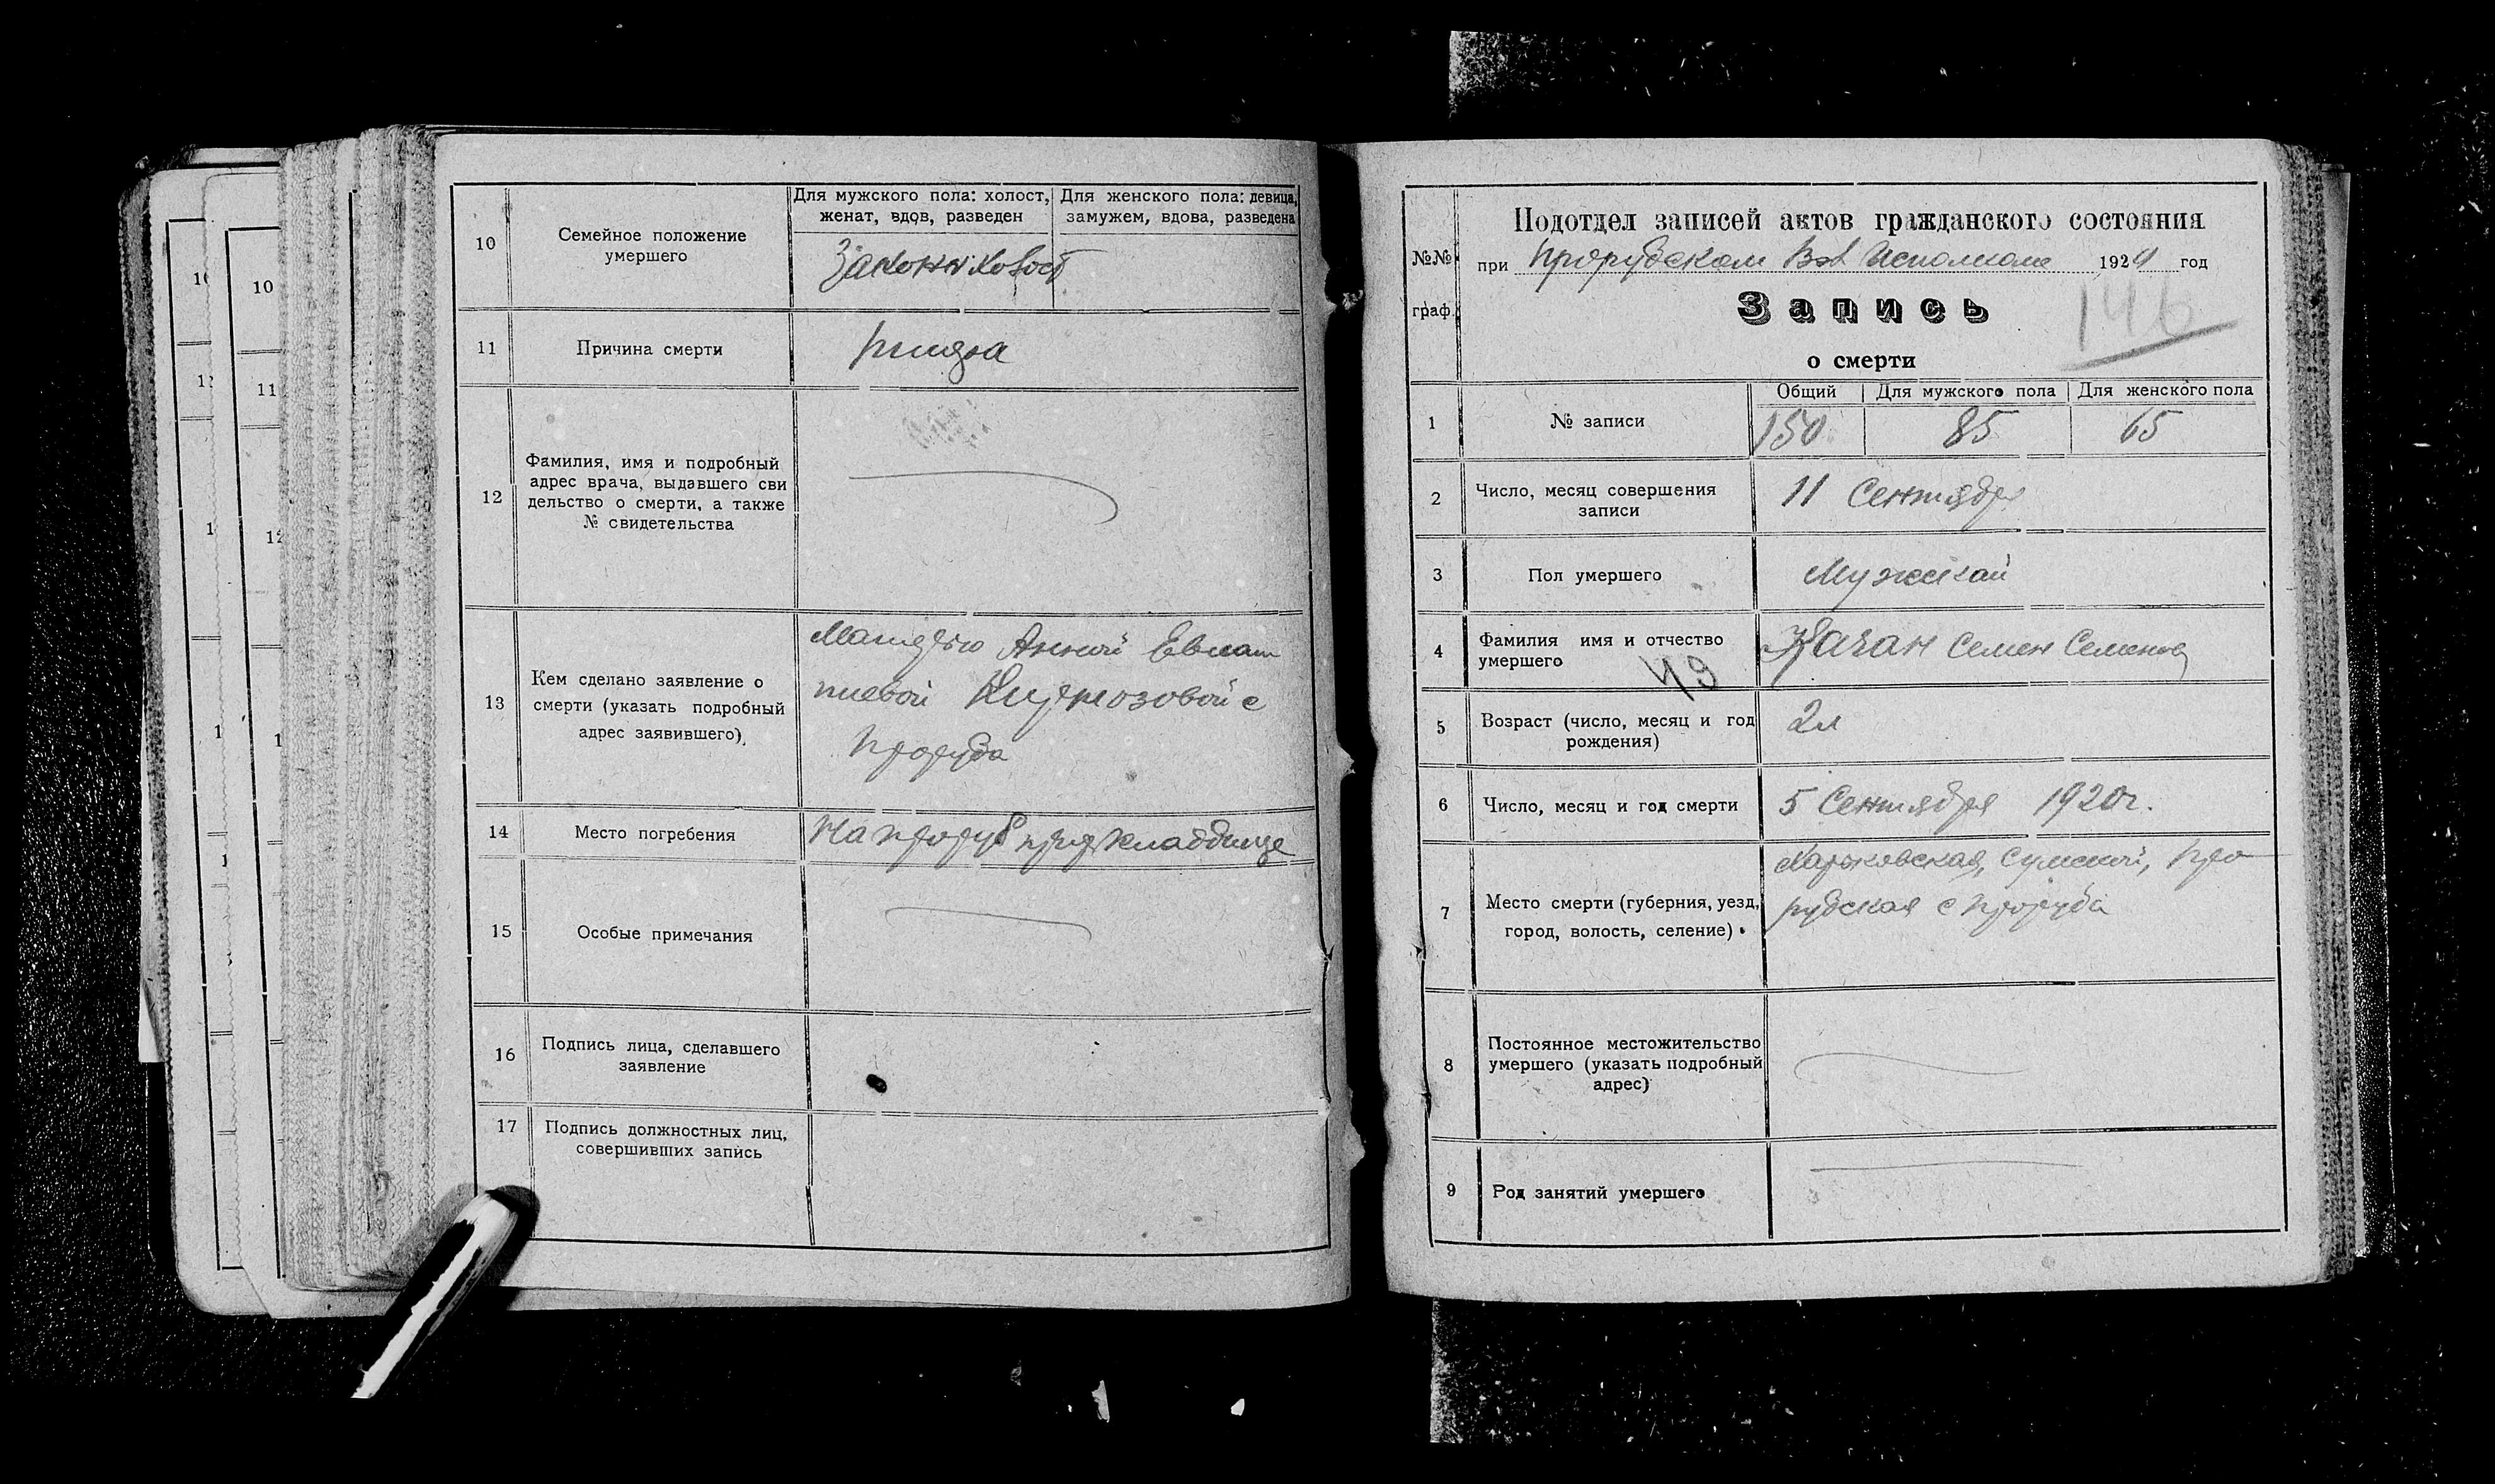 10
Семейное положение
умершего
Для мужского пола: холост,
женат, вдов, разведен
Для женского пола: девица,
замужем, вдова, разведена
11
Причина смерти
12
Фамилия, имя и подробный
адрес врача, выдавшего сви
дельство о смерти, а также
№ свидетельства
13
Кем сделано заявление о
смерти (указать подробный
адрес заявившего)
Анной Евпат
пиевой с
Проруба
14
Место погребения
На кладбище
15
Особые примечания
16
Подпись лица, сделавшего
заявление
17
Подпись должностных лиц,
совершивших запись
№№
граф.
Подотдел записей актов гражданского состояния
при Прорубском Исполкоме 192 год
Запись
146
о смерти
1
№ записи
Общий
Для мужского пола
Для женского пола
150
85
65
2
Число, месяц совершения
записи
11 Сентября
3
Пол умершего
Мужской
4
Фамилия имя и отчество
умершего
49
Качан Семен Семенов
5
Возраст (число, месяц и год
рождения)
2л
6
Число, месяц и год смерти
5 Сентября 1920г.
7
Место смерти (губерния, уезд,
город, волость, селение)
Харьковская, Сумский, Про
рубская с Проруба
8
Постоянное местожительство
умершего (указать подробный
адрес)
9
Род занятий умершего
10
11
12